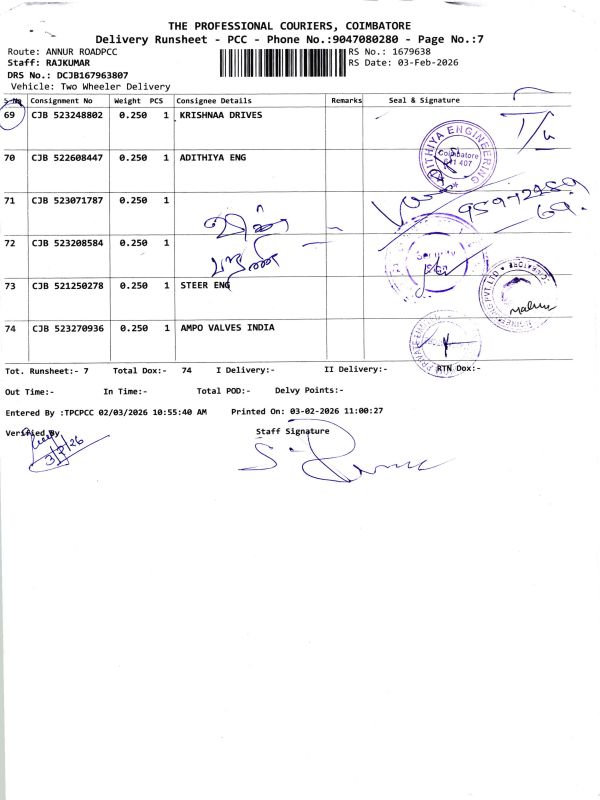 THE PROFESSIONAL COURIERS, COIMBATORE
Delivery Runsheet - PCC - Phone No.:9047080280 - Page No.:7
Route: ANNUR ROADPCC
RS No.: 1679638
Staff: RAJKUMAR
RS Date: 03-Feb-2026
DRS No.: DCJB167963807
Vehicle: Two Wheeler Delivery
S No Consignment No Weight PCS Consignee Details Remarks Seal & Signature
69 CJB 523248802 0.250 1 KRISHNAA DRIVES
70 CJB 522608447 0.250 1 ADITHIYA ENG
ADITHIYA ENGINEERING
Coimbatore
641 407
71 CJB 523071787 0.250 1
72 CJB 523208584 0.250 1
Security
73 CJB 521250278 0.250 1 STEER ENG
74 CJB 523270936 0.250 1 AMPO VALVES INDIA
Tot. Runsheet:- 7 Total Dox:- 74 I Delivery:- II Delivery:- RTN Dox:-
Out Time:- In Time:- Total POD:- Delvy Points:-
Entered By :TPCPCC 02/03/2026 10:55:40 AM Printed On: 03-02-2026 11:00:27
Verified By
Staff Signature
3/2/26